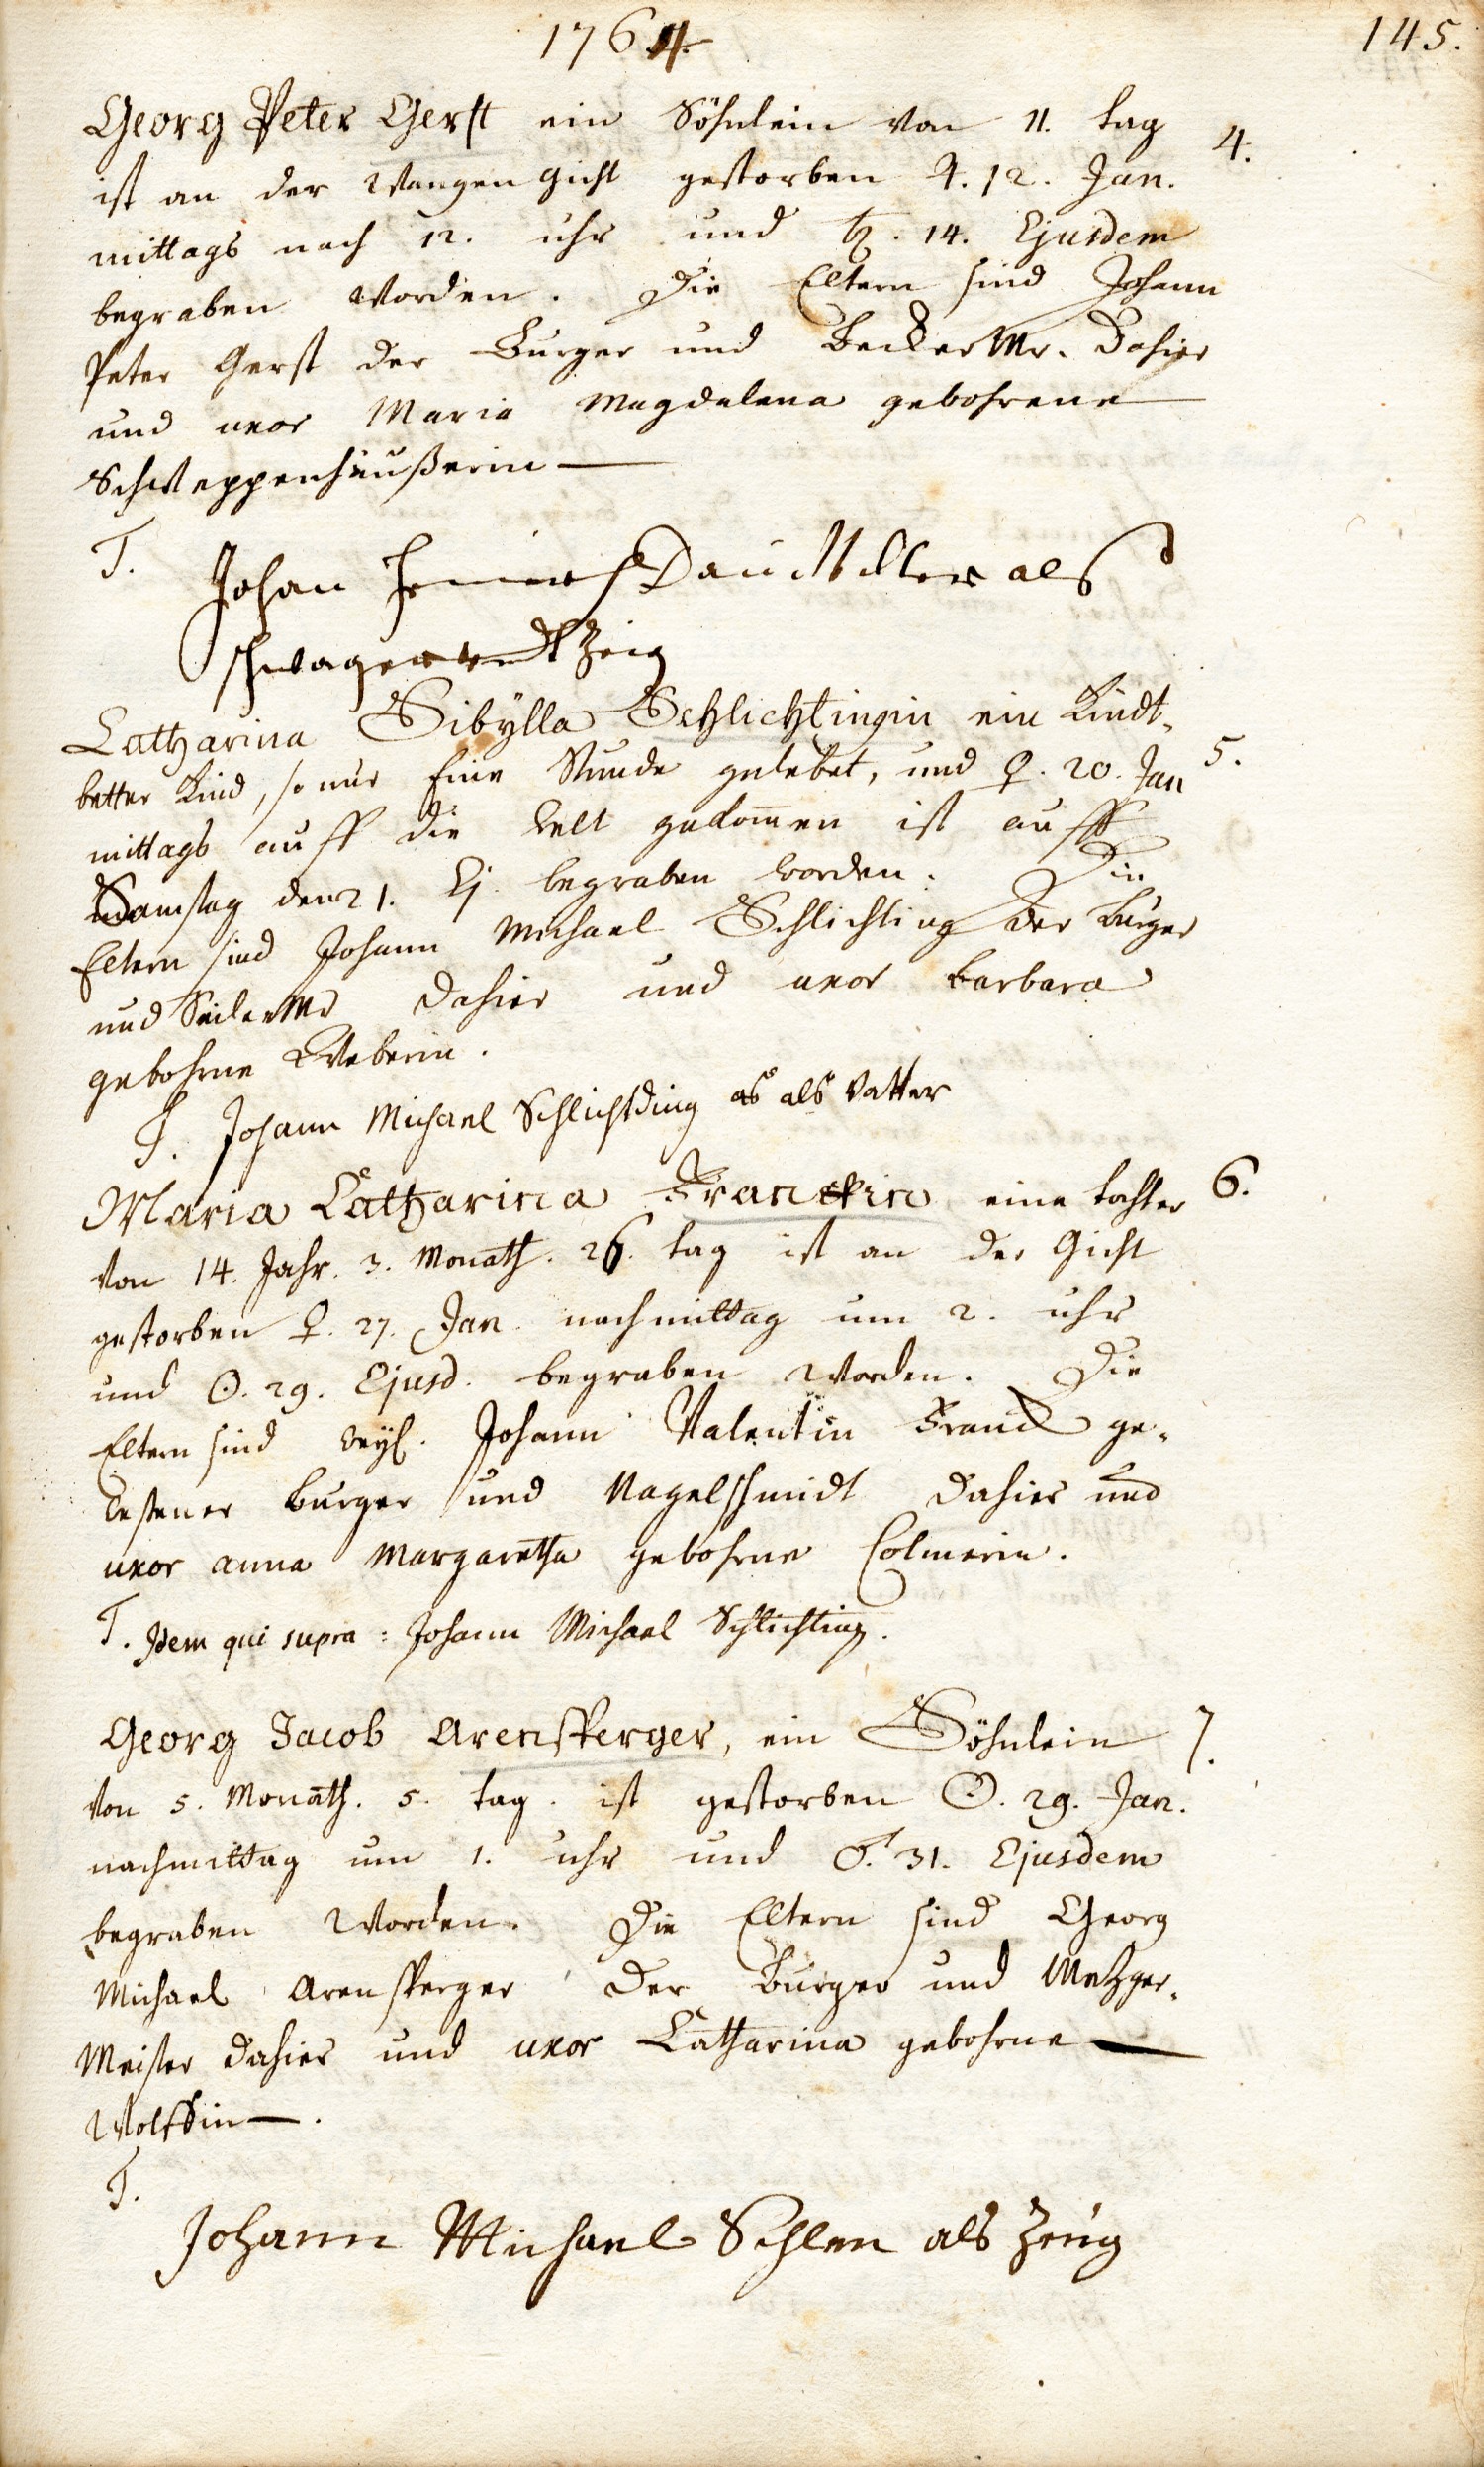 1764
145.
Georg Peter Gerst ein Söhnlein von 11. tag
4.
ist an der Wangen Gicht gestorben ♃. 12. Jan.
mittags nach 12. uhr und ♄. 14. Ejusdem
begraben worden. Die Eltern sind Johann
Peter Gerst der Burger und Becker Mr. dahier
und uxor Maria Magdalena gebohrene
Schweppenhäußerin
T.
Johan als
schwager undt Zeig
Catharina Sibÿlla Schlichtingin ein Kindt-
5.
better Kind, so nur Eine Stunde gelebet, und ♀. 20. Jan
mittags auff die Welt gekom̄en ist auff
Samstag den 21. Ej. begraben worden. Die
Eltern sind Johann Michael Schlichting der Burger
und Seiler Mr dahier und uxor Barbara
gebohrne Weberin.
T. Johann Michael Schlichtding as als Vatter
Maria Catharina Franckin eine tochter
6.
von 14. Jahr. 3. Monath. 26. tag ist an der Gicht
gestorben ♀. 27. Jan. nachmittag um 2. uhr
und ☉. 29. Ejusd. begraben worden. Die
Eltern sind weyl. Johann Valentin Franck ge-
wesener Burger und Nagelschmidt dahier und
uxor anna Margaretha gebohrne Colmerin.
T. Idem qui supra: Johann Michael Schlichting.
Georg Jacob Arensperger, ein Söhnlein
7.
von 5. Monath. 5. tag. ist gestorben ☉. 29. Jan.
nachmittag um 1. uhr und ♂. 31. Ejusdem
begraben worden. Die Eltern sind Georg
Michael Arensperger der Burger und Metzger-
Meister dahier und uxor Catharina gebohrne
Wolffin.
T.
Johann Michael Sehlen als Zeug